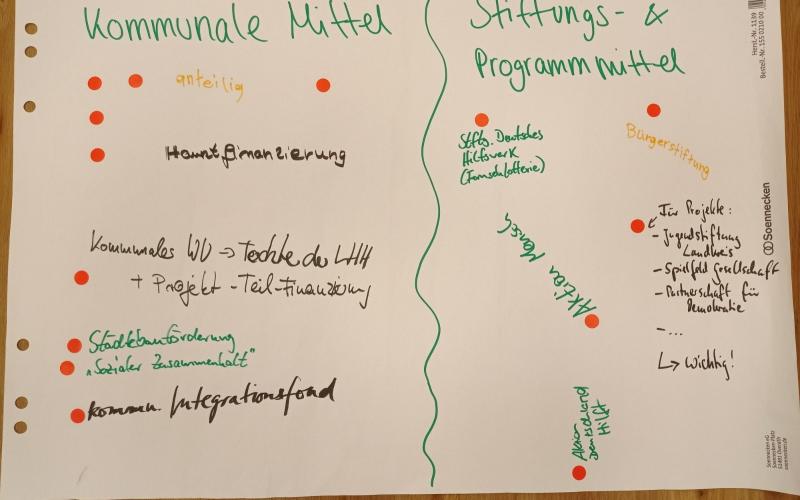 Kommunale Mittel
anteilig
Hauptfinanzierung
Kommunales WU → Tochter der LHH
+ Projekt - Teil-Finanzierung
Städtebauförderung
„Sozialer Zusammenhalt"
kommun. Integrationsfond
Stiftungs- &
Programmmittel
Stiftg. Deutsches
Hilfswerk
(Fernsehlotterie)
Bürgerstiftung
Aktion Mensch
Für Projekte:
- Jugendstiftung
Landkreis
- Spielfeld Gesellschaft
- Partnerschaft für
Demokratie
- ...
↳ Wichtig!
Aktion
Deutschland
Hilft
Herst.-Nr. 1139
Bestell.-Nr. 155 0210 00
Soennecken
Soennecken eG
Soennecken-Platz
51491 Overath
soennecken.de